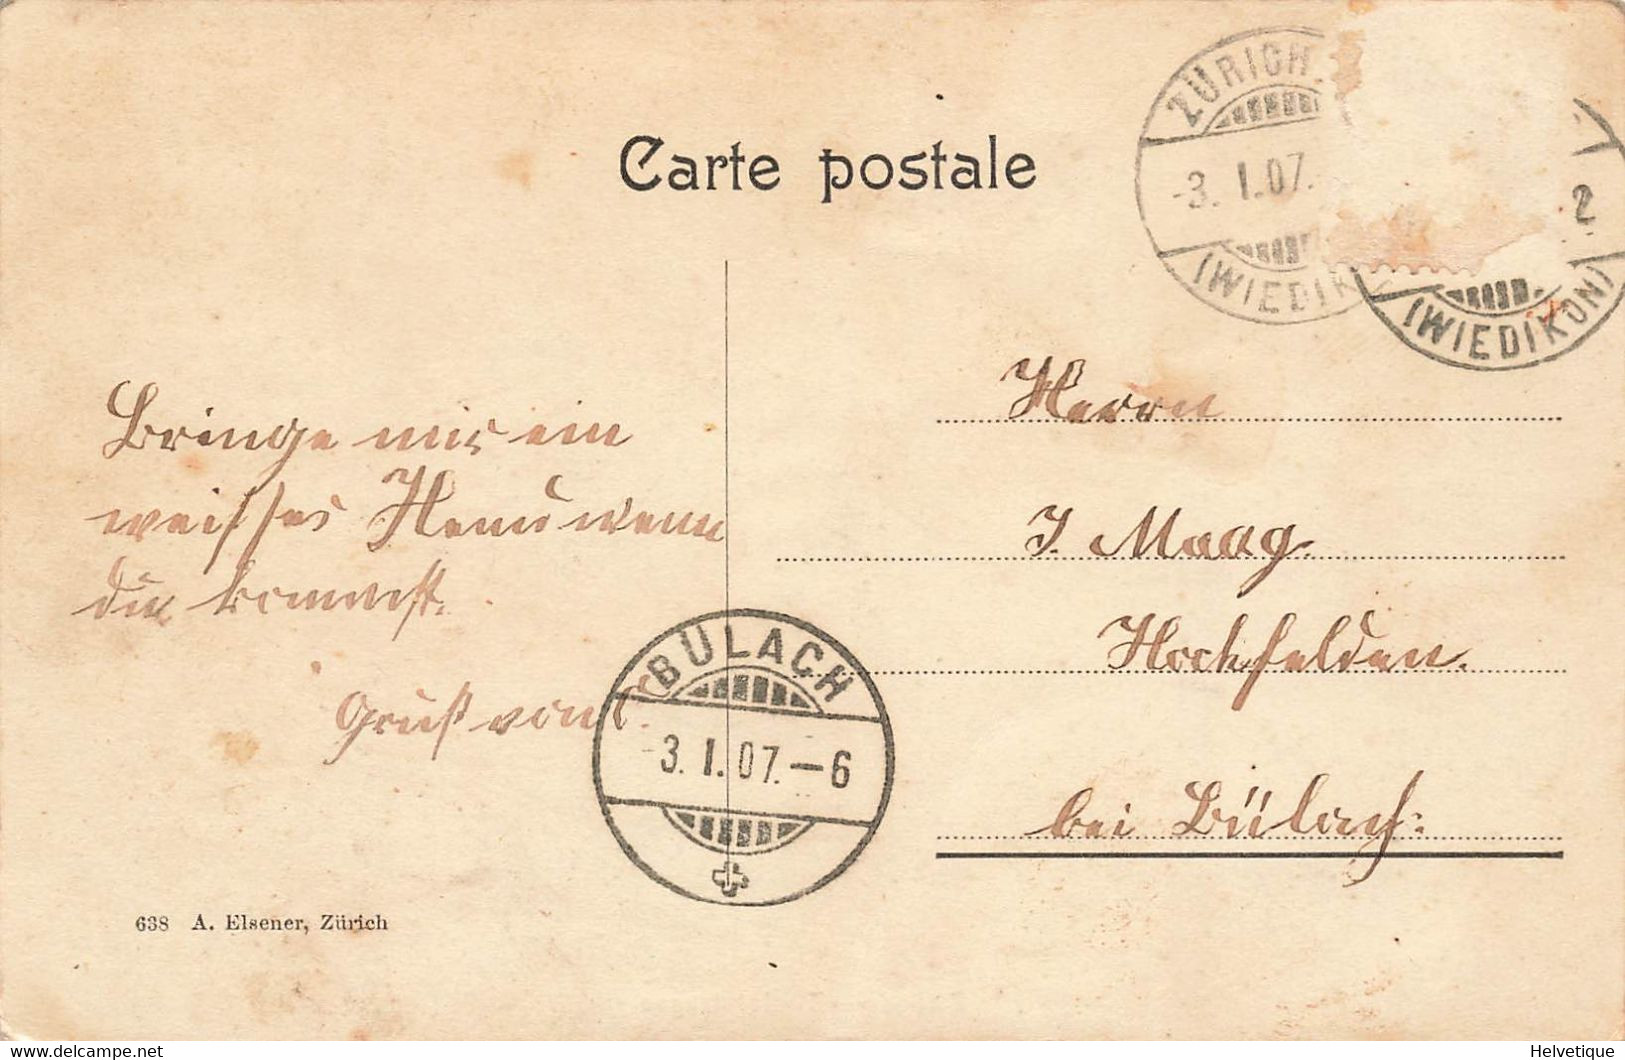 Carte postale
ZÜRICH
-3. I. 07.
(WIEDIK
2
(WIEDIKON)
Bringe mir ein
weisses Hemd wenn
du kommst.
Gruß von
Herrn
J. Maag
Hochfelden.
bei Bülach.
BÜLACH
-3. I. 07.–6
638 A. Elsener, Zürich
delcampe.net
Helvetique